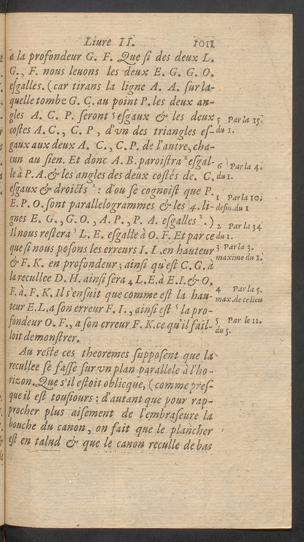 Liure II. 1011
à la profondeur G. F. Que si des deux L.
G., F. nous leuons les deux E. G. G. O.
esgalles. (car tirans la ligne A. A. sur la-
quelle tombe G. C. au point P. les deux an-
gles A. C. P. seront ⁵ esgaux & les deux
costés A. C., C. P., d'vn des triangles es-
gaux aux deux A. C., C. P. de l'autre, cha-
cun au sien. Et donc A. B. paroistra ⁶ esgal-
le à P. A. & les angles des deux costés de. C.
esgaux & droicts ¹: d'ou se cognoist que P.
E. P. O. sont parallelogrammes & les 4. li-
gnes E. G., G. O., A. P., P. A. esgalles ².)
Il nous restera ³ L. E. esgalle à O. F. Et par ce
que si nous posons les erreurs I. I. en hauteur
& F. K. en profondeur; ainsi qu'est C. G. à
la recullee D. H. ainsi sera ⁴ L. E. à E. I. & O.
F. à F. K. Il s'ensuit que comme est la hau-
teur E. L. a son erreur F. I., ainsi est ⁵ la pro-
fondeur O. F., a son erreur F. K. ce qu'il fail-
loit demonstrer.
Au reste ces theoremes supposent que la
recullee se fasse sur vn plan parallele à l'ho-
rizon. Que s'il estoit oblicque, (comme pres-
que il est tousiours: d'autant que pour rap-
procher plus aisement de l'embraseure la
bouche du canon, on fait que le plancher
est en talud & que le canon reculle de bas
5 Par la 15.
du 1.
6 Par la 4.
du 1.
1 Par la 10.
desin.du 1
2 Par la 34
du 1.
3 Par la 3.
maxime du 1.
4 Par la 5.
max.de celieu
5 Par le 11.
du 5.